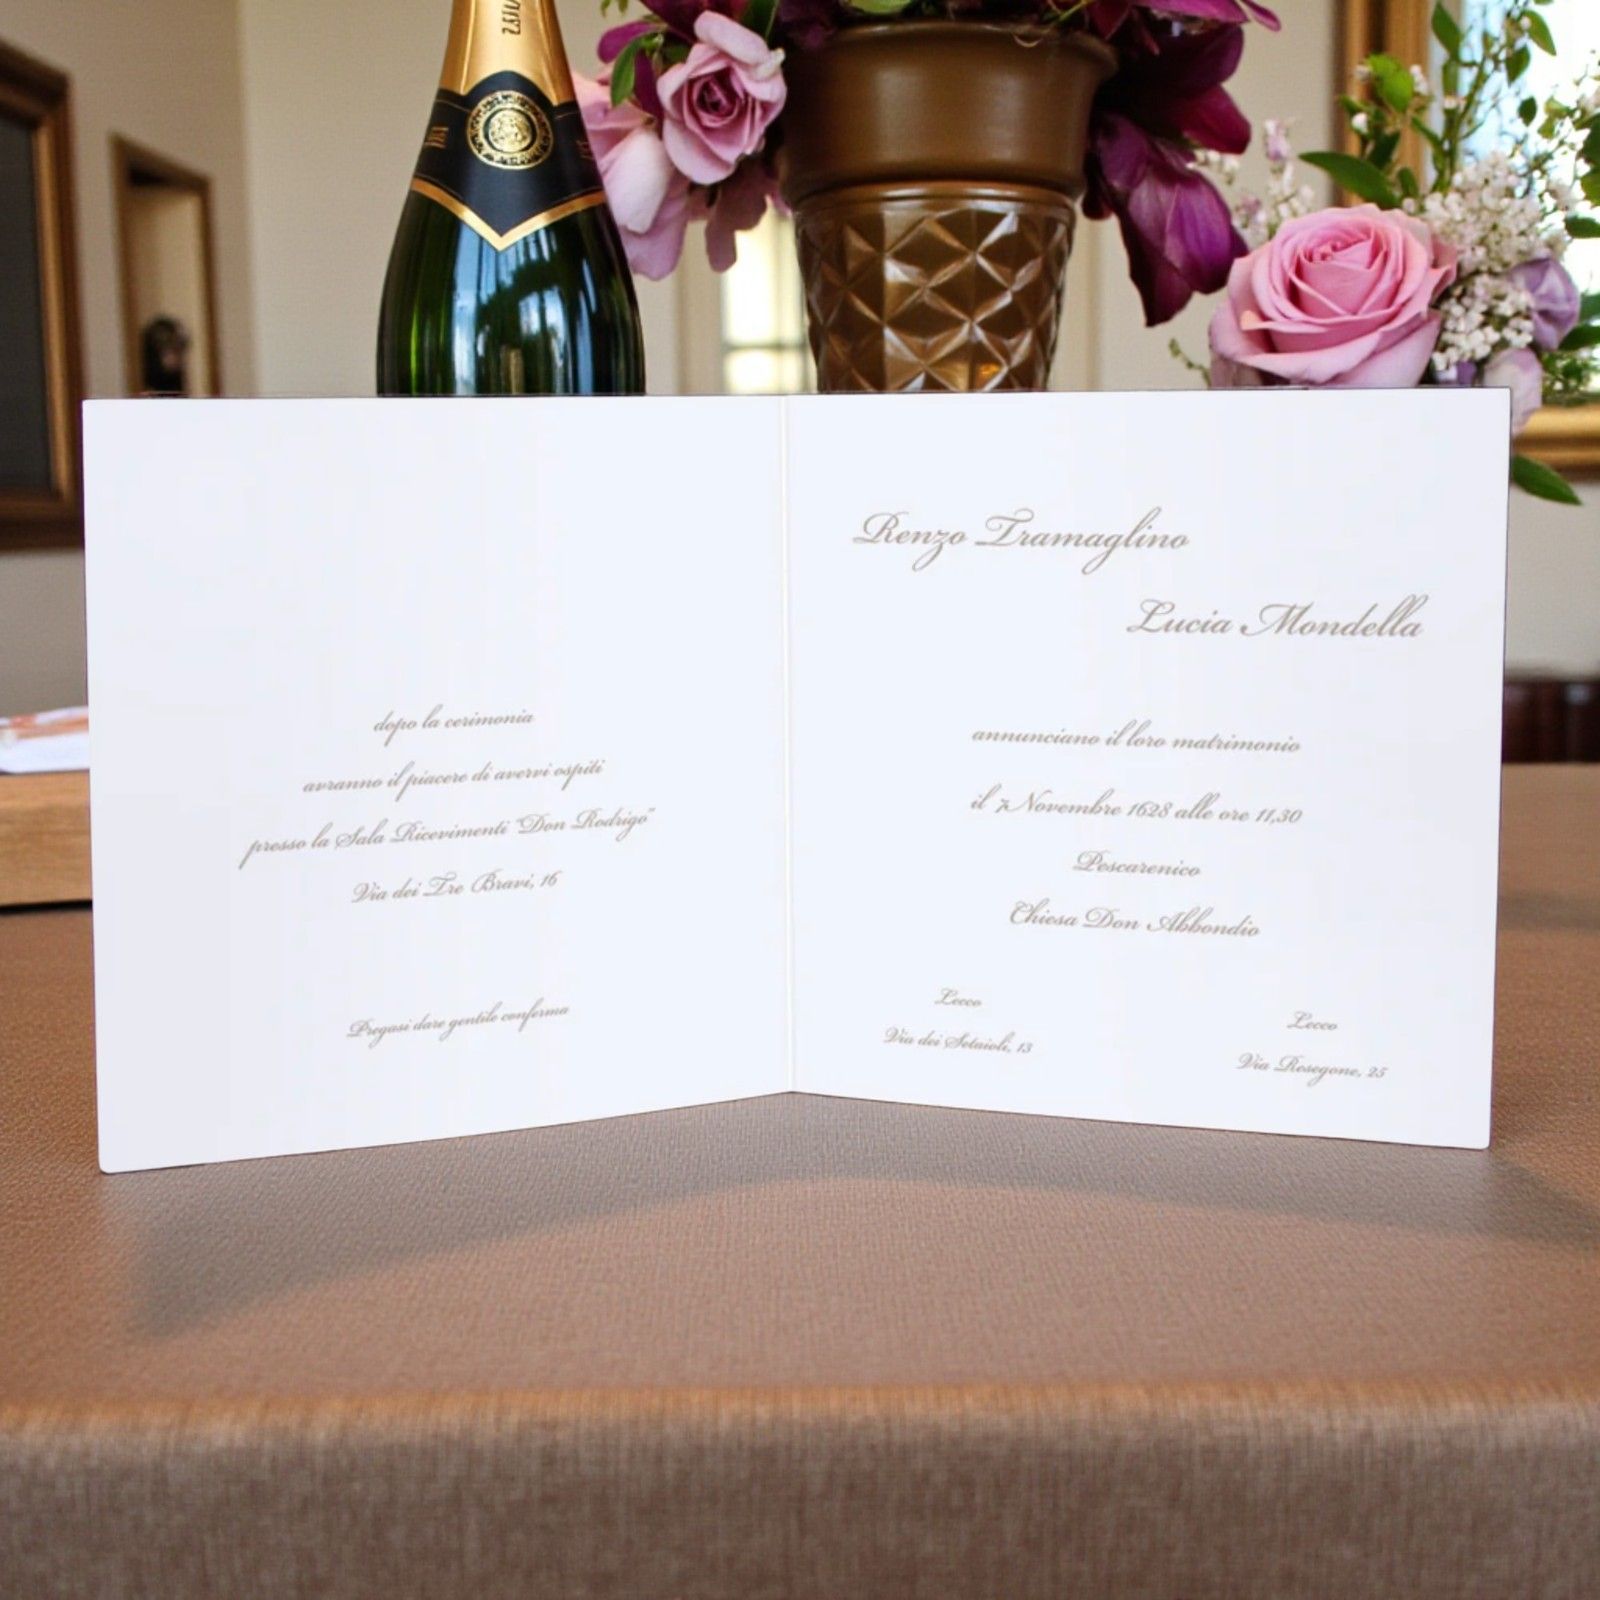 dopo la cerimonia
avranno il piacere di avervi ospiti
presso la Sala Ricevimenti "Don Rodrigo"
Via dei Tre Bravi, 16
Pregasi dare gentile conferma
Renzo Tramaglino
Lucia Mondella
annunciano il loro matrimonio
il 7 Novembre 1628 alle ore 11,30
Pescarenico
Chiesa Don Abbondio
Lecco
Via dei Setaioli, 13
Lecco
Via Resegone, 25